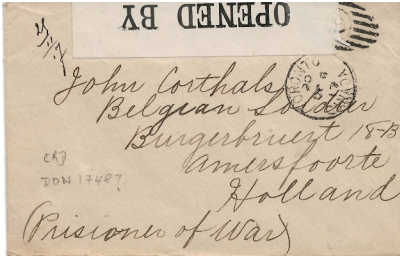 OPENED BY
John Corthals
Belgian Soldier
Burgerbruezt 18-B
Amersfoorte
Holland
(Prisioner of War)
DON 1748?
TORONTO
CANADA